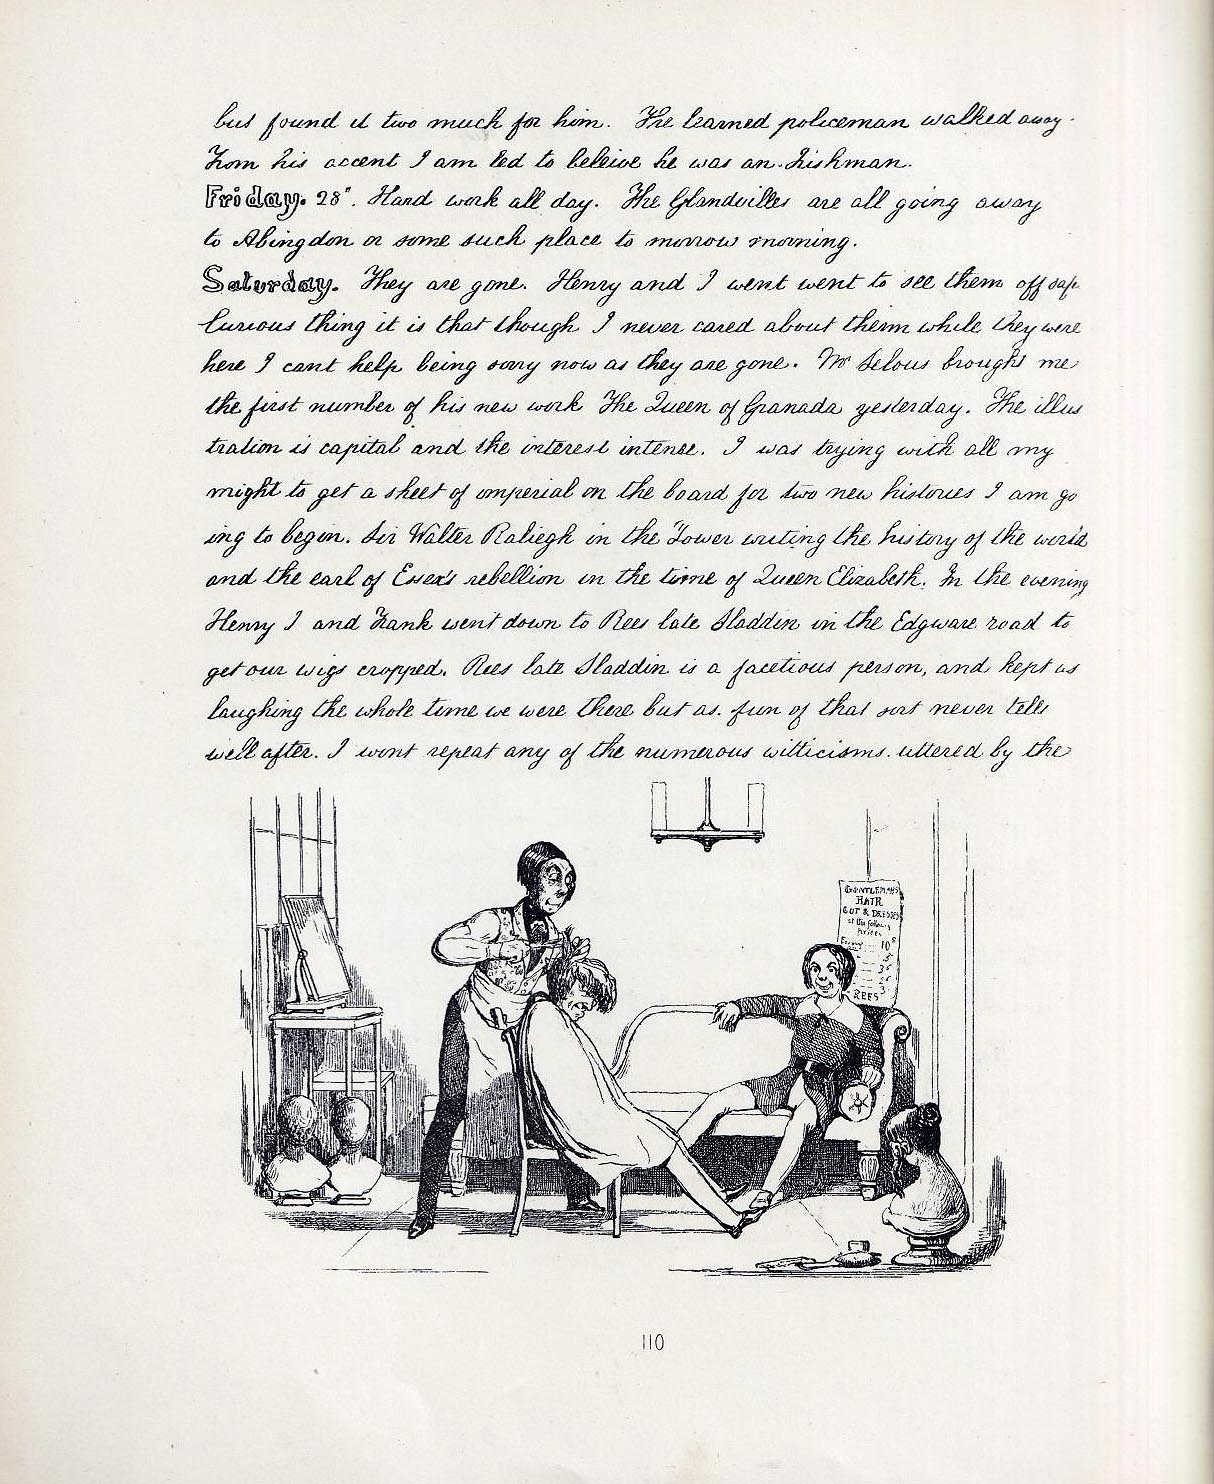 but found it two much for him. The learned policeman walked away.
From his accent I am led to beleive he was an Irishman.
Friday. 28". Hard work all day. The Glandvilles are all going away
to Abingdon or some such place to morrow morning.
Saturday. They are gone. Henry and I went went to see them off safe
Curious thing it is that though I never cared about them while they were
here I cant help being sorry now as they are gone. Mr Selous brought me
the first number of his new work The Queen of Granada yesterday. The illus
tration is capital and the interest intense. I was trying with all my
might to get a sheet of imperial on the board for two new histories I am go
ing to begin. Sir Walter Raliegh in the Tower writing the history of the world
and the earl of Essex's rebellion in the time of Queen Elizabeth. In the evening
Henry I and Frank went down to Rees late Sladdin in the Edgware road to
get our wigs cropped. Rees late Sladdin is a facetious person, and kept us
laughing the whole time we were there but as fun of that sort never tells
well after. I wont repeat any of the numerous witticisms uttered by the
GENTLEMANS
HAIR
CUT & DRESSED
at the following
Prices
10s
5
REES
110